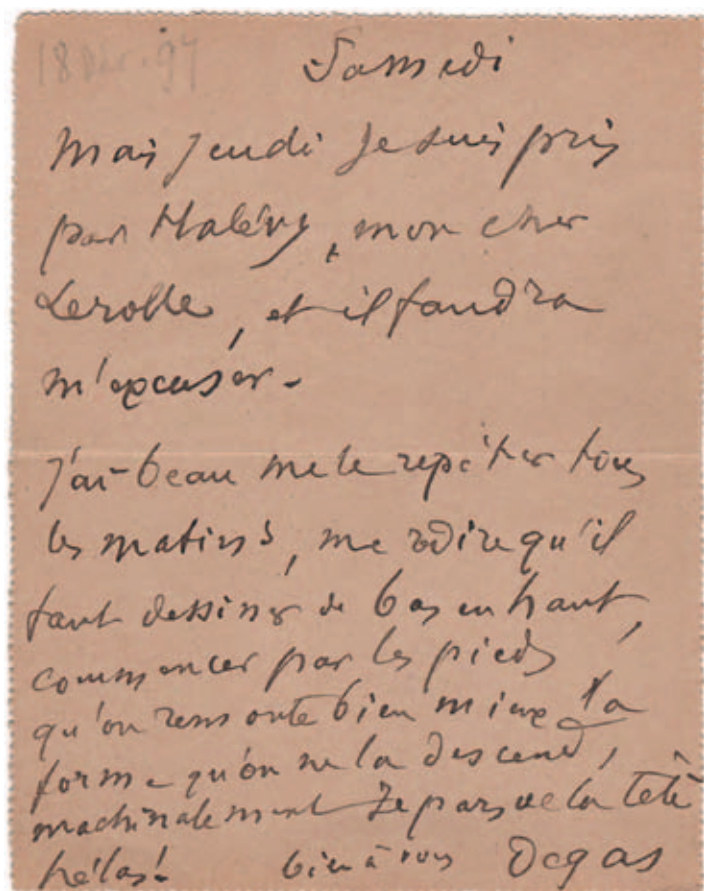 18 Dec. 97
Samedi
Mais jeudi je suis pris
par Halévy, mon cher
Lerolle, et il faudra
m'excuser.
J'ai beau me le repéter tous
les matins, me redire qu'il
faut dessiner de bas en haut,
commencer par les pieds,
qu'on remonte bien mieux la
forme qu'on ne la descend,
machinalement Je pars de la tête
hélas! bien à vous Degas